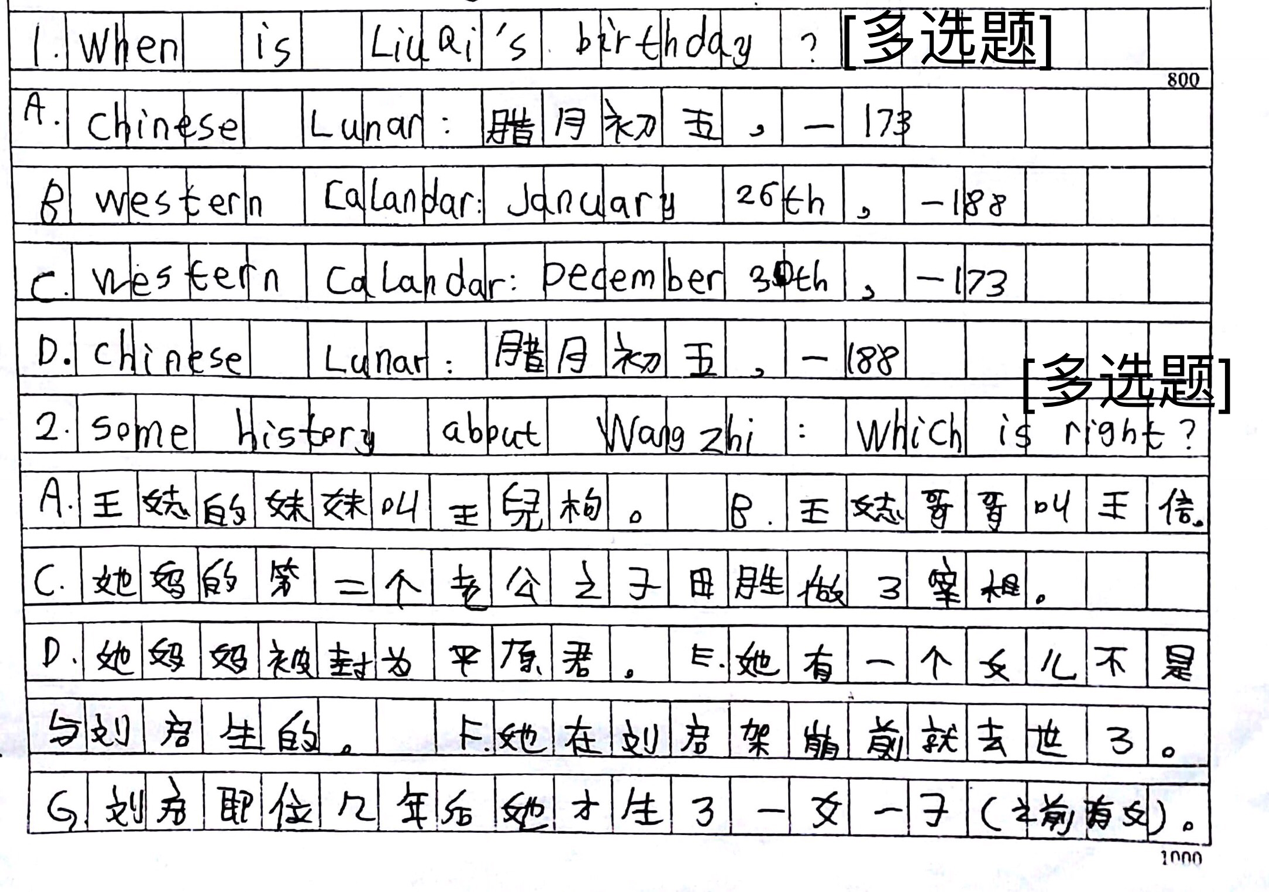 1. When is LiuQi's birthday ? [多选题]
800
A. Chinese Lunar: 腊月初五,-173
B Western Calandar: January 26th, -188
C. Western Calandar: December 30th, -173
D. Chinese Lunar: 腊月初五,-188
[多选题]
2. Some history about Wangzhi : Which is right?
A. 王娡的妹妹叫王兒姁。 B. 王娡哥哥叫王信。
C. 她妈的第二个老公之子田胜做了宰相。
D. 她妈妈被封为平原君。 E. 她有一个女儿不是
与刘启生的。 F. 她在刘启驾崩前就去世了。
G. 刘启即位几年后她才生了一女一子(之前有女)。
1000